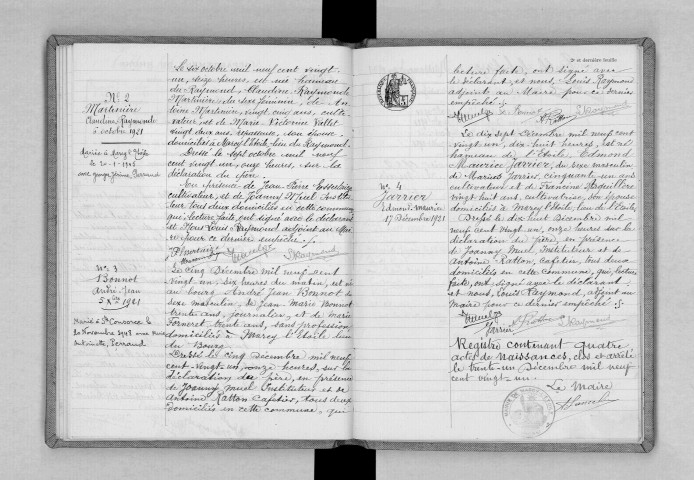 Nº 2
Martinière
Claudine Raymonde
6 octobre 1921
Le six octobre mil neuf cent vingt-
un, seize heures, est née hameau
du Raymond, Claudine Raymonde
Martinière, du sexe féminin, de An-
toine Martinière, vingt cinq ans, cultiva-
teur, et de Marie Victorine Vallet
vingt deux ans, repasseuse, son épouse
domiciliés à Marcy l'Etoile, lieu du Raymond.
Dressé le sept octobre mil neuf
cent vingt un, onze heures, sur la
déclaration du père.
En présence de Jean Pierre
cultivateur, et de Joanny Muel Institu-
teur tous deux domiciliés en cette commune
qui, lecture faite, ont signé avec le déclarant
et Nous Louis Raymond adjoint au Mai-
re pour ce dernier empêché.
Raymond
Nº 3
Bonnot
André Jean
5 Xbre 1921
Marié à
20 Novembre 1943 avec
Antoinette, Perraud
Le cinq Décembre mil neuf cent
vingt un, dix heures du matin, est né
au bourg André Jean Bonnot du
sexe masculin, de Jean Marie Bonnot
trente ans, journalier, et de Marie
trente ans, sans profession
domiciliés à Marcy l'Etoile lieu
du Bourg.
Dressé le cinq Décembre mil neuf
cent vingt-un, onze heures, sur la
déclaration du père, en présence
de Joanny Muel Instituteur et de
Antoine Ratton cafetier, tous deux
domiciliés en cette commune, qui
2e et dernière feuille
lecture faite, ont signé avec
le déclarant, et nous, Louis Raymond
adjoint au Maire pour ce dernier
empêché.
Bonnot Raymond
Nº 4
Jarrier
Edmond Maurice
17 Décembre 1921
Le dix sept Décembre mil neuf cent
vingt un, dix huit heures, est né
hameau de l'Etoile, Edmond
Maurice Jarrier, du sexe masculin
de Marius Jarrier, cinquante un ans
cultivateur et de Francine
vingt huit ans, cultivatrice, son épouse
domiciliés à Marcy l'Etoile, lieu de l'Etoile.
Dressé le dix huit Décembre mil
neuf cent vingt un, onze heures sur la
déclaration du père, en présence
de Joanny Muel, Instituteur et de
Antoine Ratton, cafetier, tous deux
domiciliés en cette commune, qui, lecture
faite, ont signé avec le déclarant
et nous, Louis Raymond, adjoint au
Maire pour ce dernier empêché.
Jarrier Raymond
Registre contenant quatre
actes de naissances, clos et arrêté
le trente-un Décembre mil neuf
cent vingt un.
Le Maire